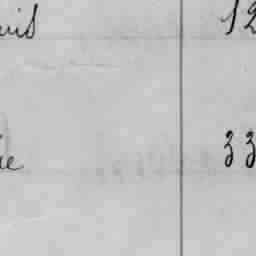 uis 12
ie 33